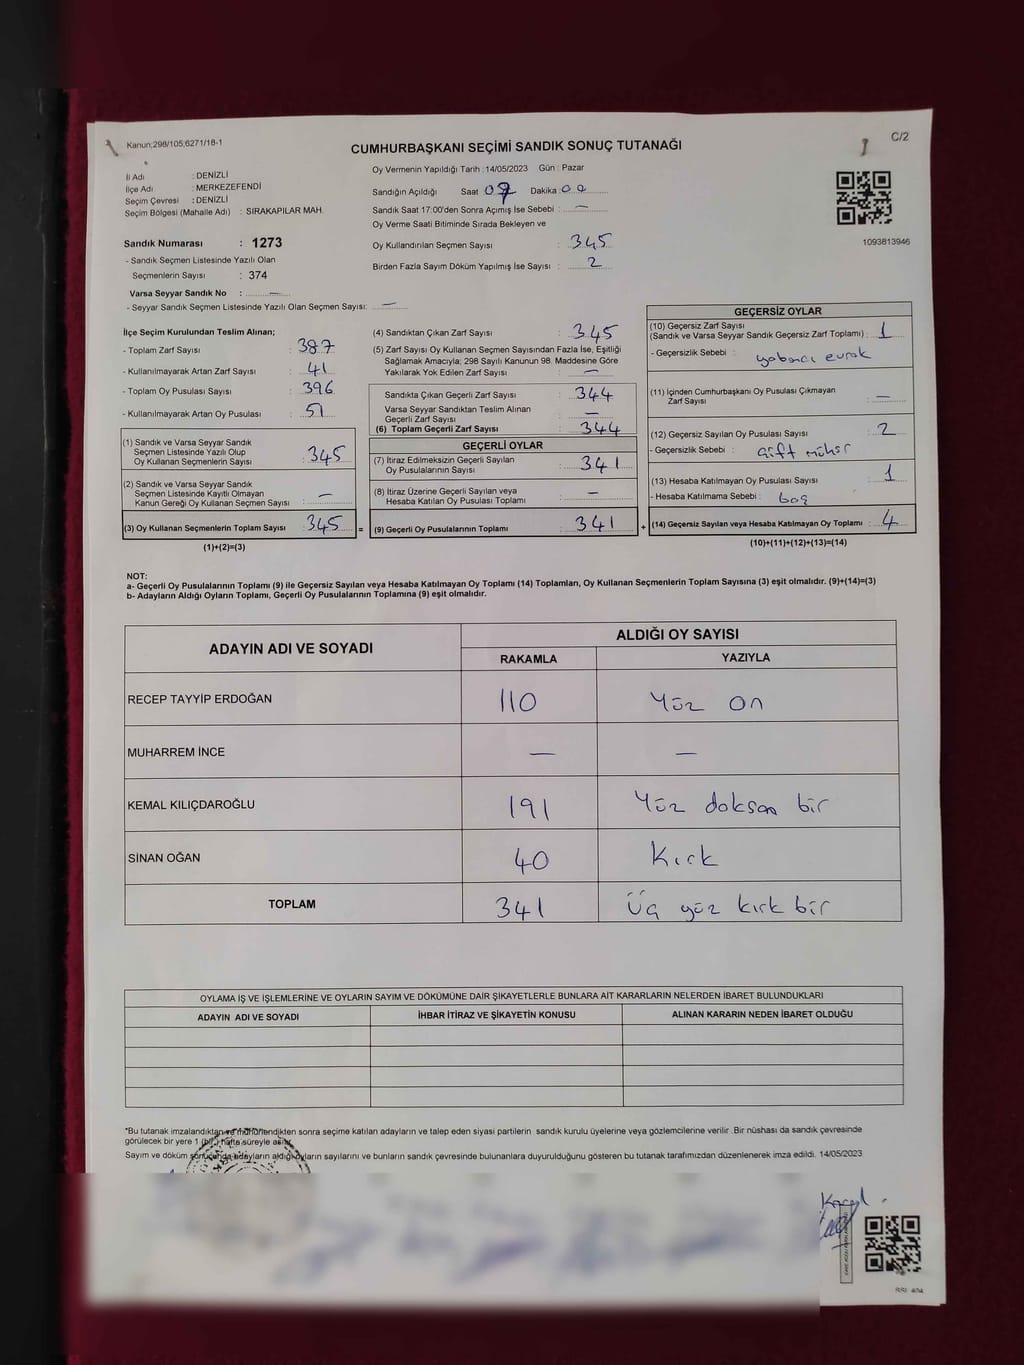 Kanun;298/105;6271/18-1
C/2
CUMHURBAŞKANI SEÇİMİ SANDIK SONUÇ TUTANAĞI
İl Adı : DENİZLİ
İlçe Adı : MERKEZEFENDİ
Seçim Çevresi : DENİZLİ
Seçim Bölgesi (Mahalle Adı) : SIRAKAPILAR MAH.
Sandık Numarası : 1273
- Sandık Seçmen Listesinde Yazılı Olan
Seçmenlerin Sayısı : 374
Varsa Seyyar Sandık No : —
- Seyyar Sandık Seçmen Listesinde Yazılı Olan Seçmen Sayısı: —
Oy Vermenin Yapıldığı Tarih :14/05/2023 Gün : Pazar
Sandığın Açıldığı Saat Dakika : 00
Sandık Saat 17:00'den Sonra Açımış İse Sebebi : —
Oy Verme Saati Bitiminde Sırada Bekleyen ve
Oy Kullandırılan Seçmen Sayısı : 345
Birden Fazla Sayım Döküm Yapılmış İse Sayısı : 2
1093813946
İlçe Seçim Kurulundan Teslim Alınan;
- Toplam Zarf Sayısı : 387
- Kullanılmayarak Artan Zarf Sayısı : 41
- Toplam Oy Pusulası Sayısı : 396
- Kullanılmayarak Artan Oy Pusulası : 51
(1) Sandık ve Varsa Seyyar Sandık
Seçmen Listesinde Yazılı Olup
Oy Kullanan Seçmenlerin Sayısı : 345
(2) Sandık ve Varsa Seyyar Sandık
Seçmen Listesinde Kayıtlı Olmayan
Kanun Gereği Oy Kullanan Seçmen Sayısı : —
(3) Oy Kullanan Seçmenlerin Toplam Sayısı : 345 =
(1)+(2)=(3)
(4) Sandıktan Çıkan Zarf Sayısı : 345
(5) Zarf Sayısı Oy Kullanan Seçmen Sayısından Fazla İse, Eşitliği
Sağlamak Amacıyla; 298 Sayılı Kanunun 98. Maddesine Göre
Yakılarak Yok Edilen Zarf Sayısı : —
Sandıkta Çıkan Geçerli Zarf Sayısı : 344
Varsa Seyyar Sandıktan Teslim Alınan
Geçerli Zarf Sayısı : —
(6) Toplam Geçerli Zarf Sayısı : 344
GEÇERLİ OYLAR
(7) İtiraz Edilmeksizin Geçerli Sayılan
Oy Pusulalarının Sayısı : 341
(8) İtiraz Üzerine Geçerli Sayılan veya
Hesaba Katılan Oy Pusulası Toplamı : —
(9) Geçerli Oy Pusulalarının Toplamı : 341 +
GEÇERSİZ OYLAR
(10) Geçersiz Zarf Sayısı
(Sandık ve Varsa Seyyar Sandık Geçersiz Zarf Toplamı) : 1
- Geçersizlik Sebebi : yabancı evrak
(11) İçinden Cumhurbaşkanı Oy Pusulası Çıkmayan
Zarf Sayısı : —
(12) Geçersiz Sayılan Oy Pusulası Sayısı : 2
- Geçersizlik Sebebi : çift mühür
(13) Hesaba Katılmayan Oy Pusulası Sayısı : 1
- Hesaba Katılmama Sebebi : boş
(14) Geçersiz Sayılan veya Hesaba Katılmayan Oy Toplamı : 4
(10)+(11)+(12)+(13)=(14)
NOT:
a- Geçerli Oy Pusulalarının Toplamı (9) ile Geçersiz Sayılan veya Hesaba Katılmayan Oy Toplamı (14) Toplamları, Oy Kullanan Seçmenlerin Toplam Sayısına (3) eşit olmalıdır. (9)+(14)=(3)
b- Adayların Aldığı Oyların Toplamı, Geçerli Oy Pusulalarının Toplamına (9) eşit olmalıdır.
ADAYIN ADI VE SOYADI
ALDIĞI OY SAYISI
RAKAMLA YAZIYLA
RECEP TAYYİP ERDOĞAN 110 Yüz on
MUHARREM İNCE — —
KEMAL KILIÇDAROĞLU 191 Yüz doksan bir
SİNAN OĞAN 40 Kırk
TOPLAM 341 Üç yüz kırk bir
OYLAMA İŞ VE İŞLEMLERİNE VE OYLARIN SAYIM VE DÖKÜMÜNE DAİR ŞİKAYETLERLE BUNLARA AİT KARARLARIN NELERDEN İBARET BULUNDUKLARI
ADAYIN ADI VE SOYADI İHBAR İTİRAZ VE ŞİKAYETİN KONUSU ALINAN KARARIN NEDEN İBARET OLDUĞU
*Bu tutanak imzalandıktan ve mühürlendikten sonra seçime katılan adayların ve talep eden siyasi partilerin sandık kurulu üyelerine veya gözlemcilerine verilir. Bir nüshası da sandık çevresinde
görülecek bir yere 1 (bir) hafta süreyle asılır.
Sayım ve döküm sonucunda adayların aldığı oyların sayılarını ve bunların sandık çevresinde bulunanlara duyurulduğunu gösteren bu tutanak tarafımızdan düzenlenerek imza edildi. 14/05/2023